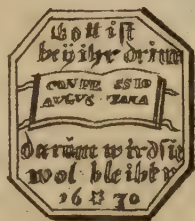 Gott ist
beÿ ihr drinn
CONFE ESSIO
AUGUS TANA
darům wird sie
wol bleiben
16 30